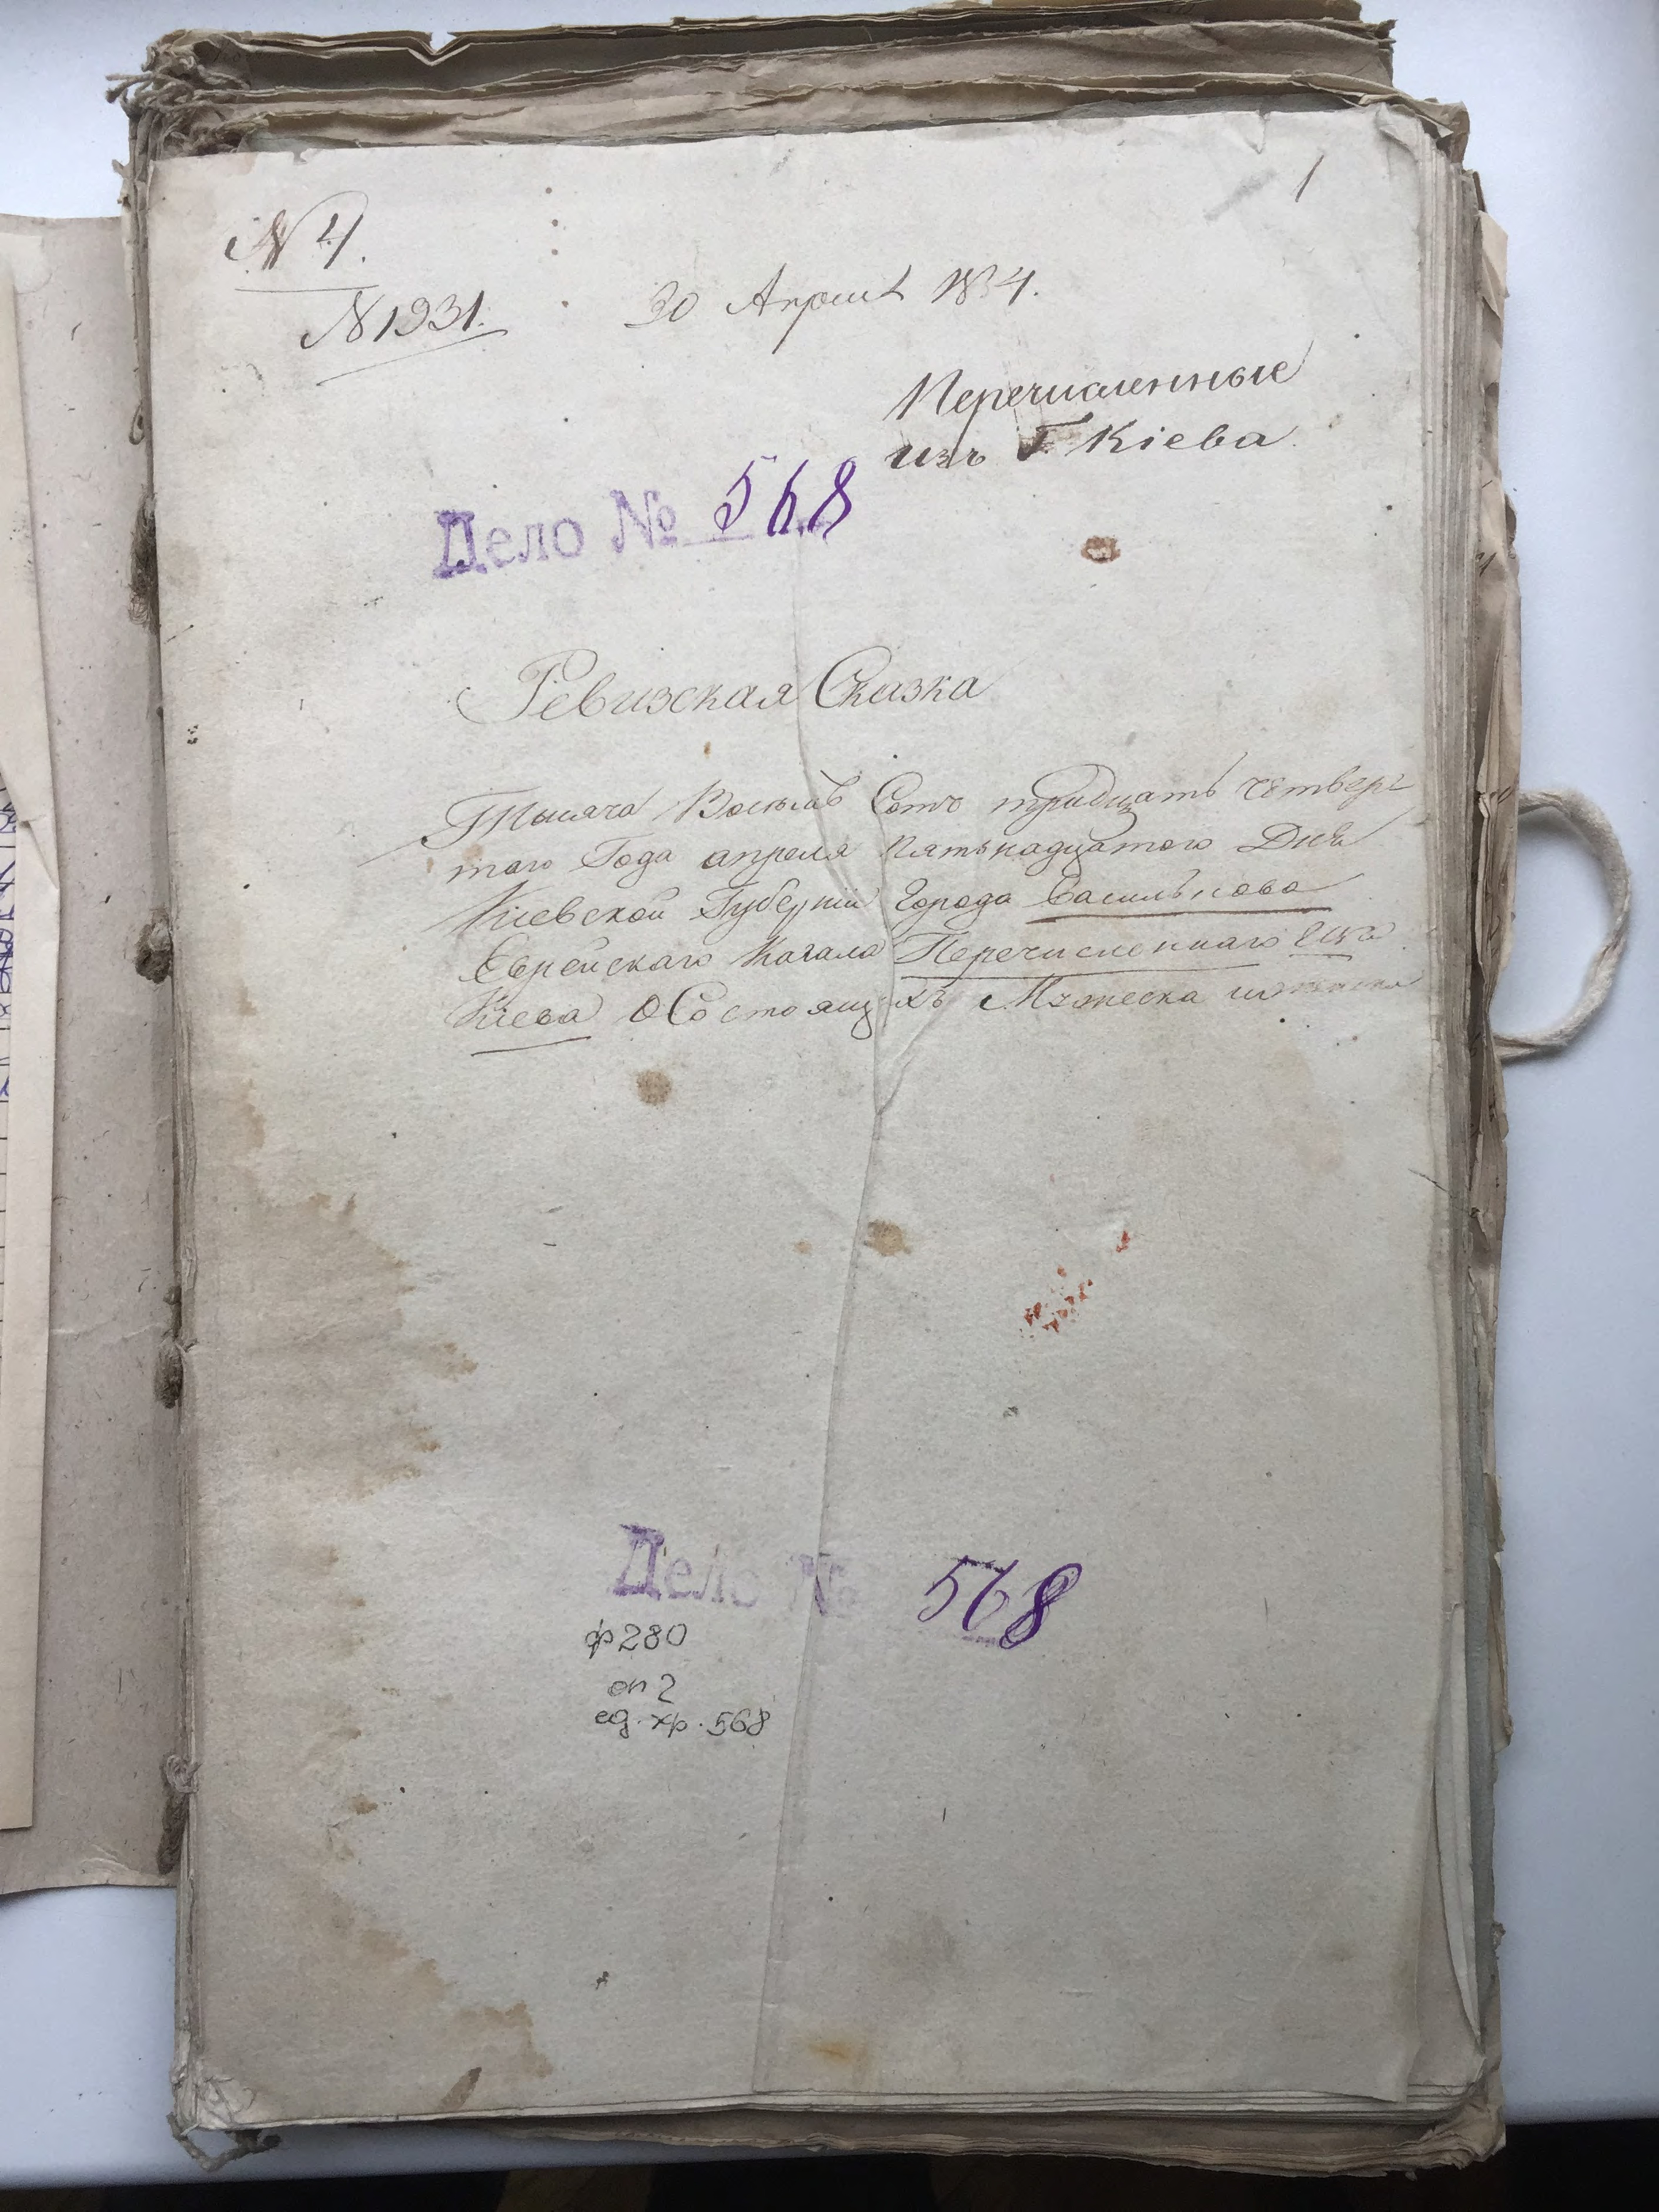 1
№ 4.
№ 1931.
30 Апреля 1834.
Перечисленные
изъ Г. Кіева.
Дело № 568
Ревизская Сказка
Тысяча Восемь Сотъ тридцать четвер
таго Года апреля пятьнадцатого Дня
Киевской Губерніи Города Василькова
Еврейскаго Кагала Перечисленнаго
Киева О Состоящихъ Мужеска
Дело № 568
ф 280
оп 2
ед. хр. 568